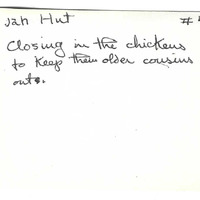 Jan Hut #
Closing in the chickens
to keep them older cousins
out.